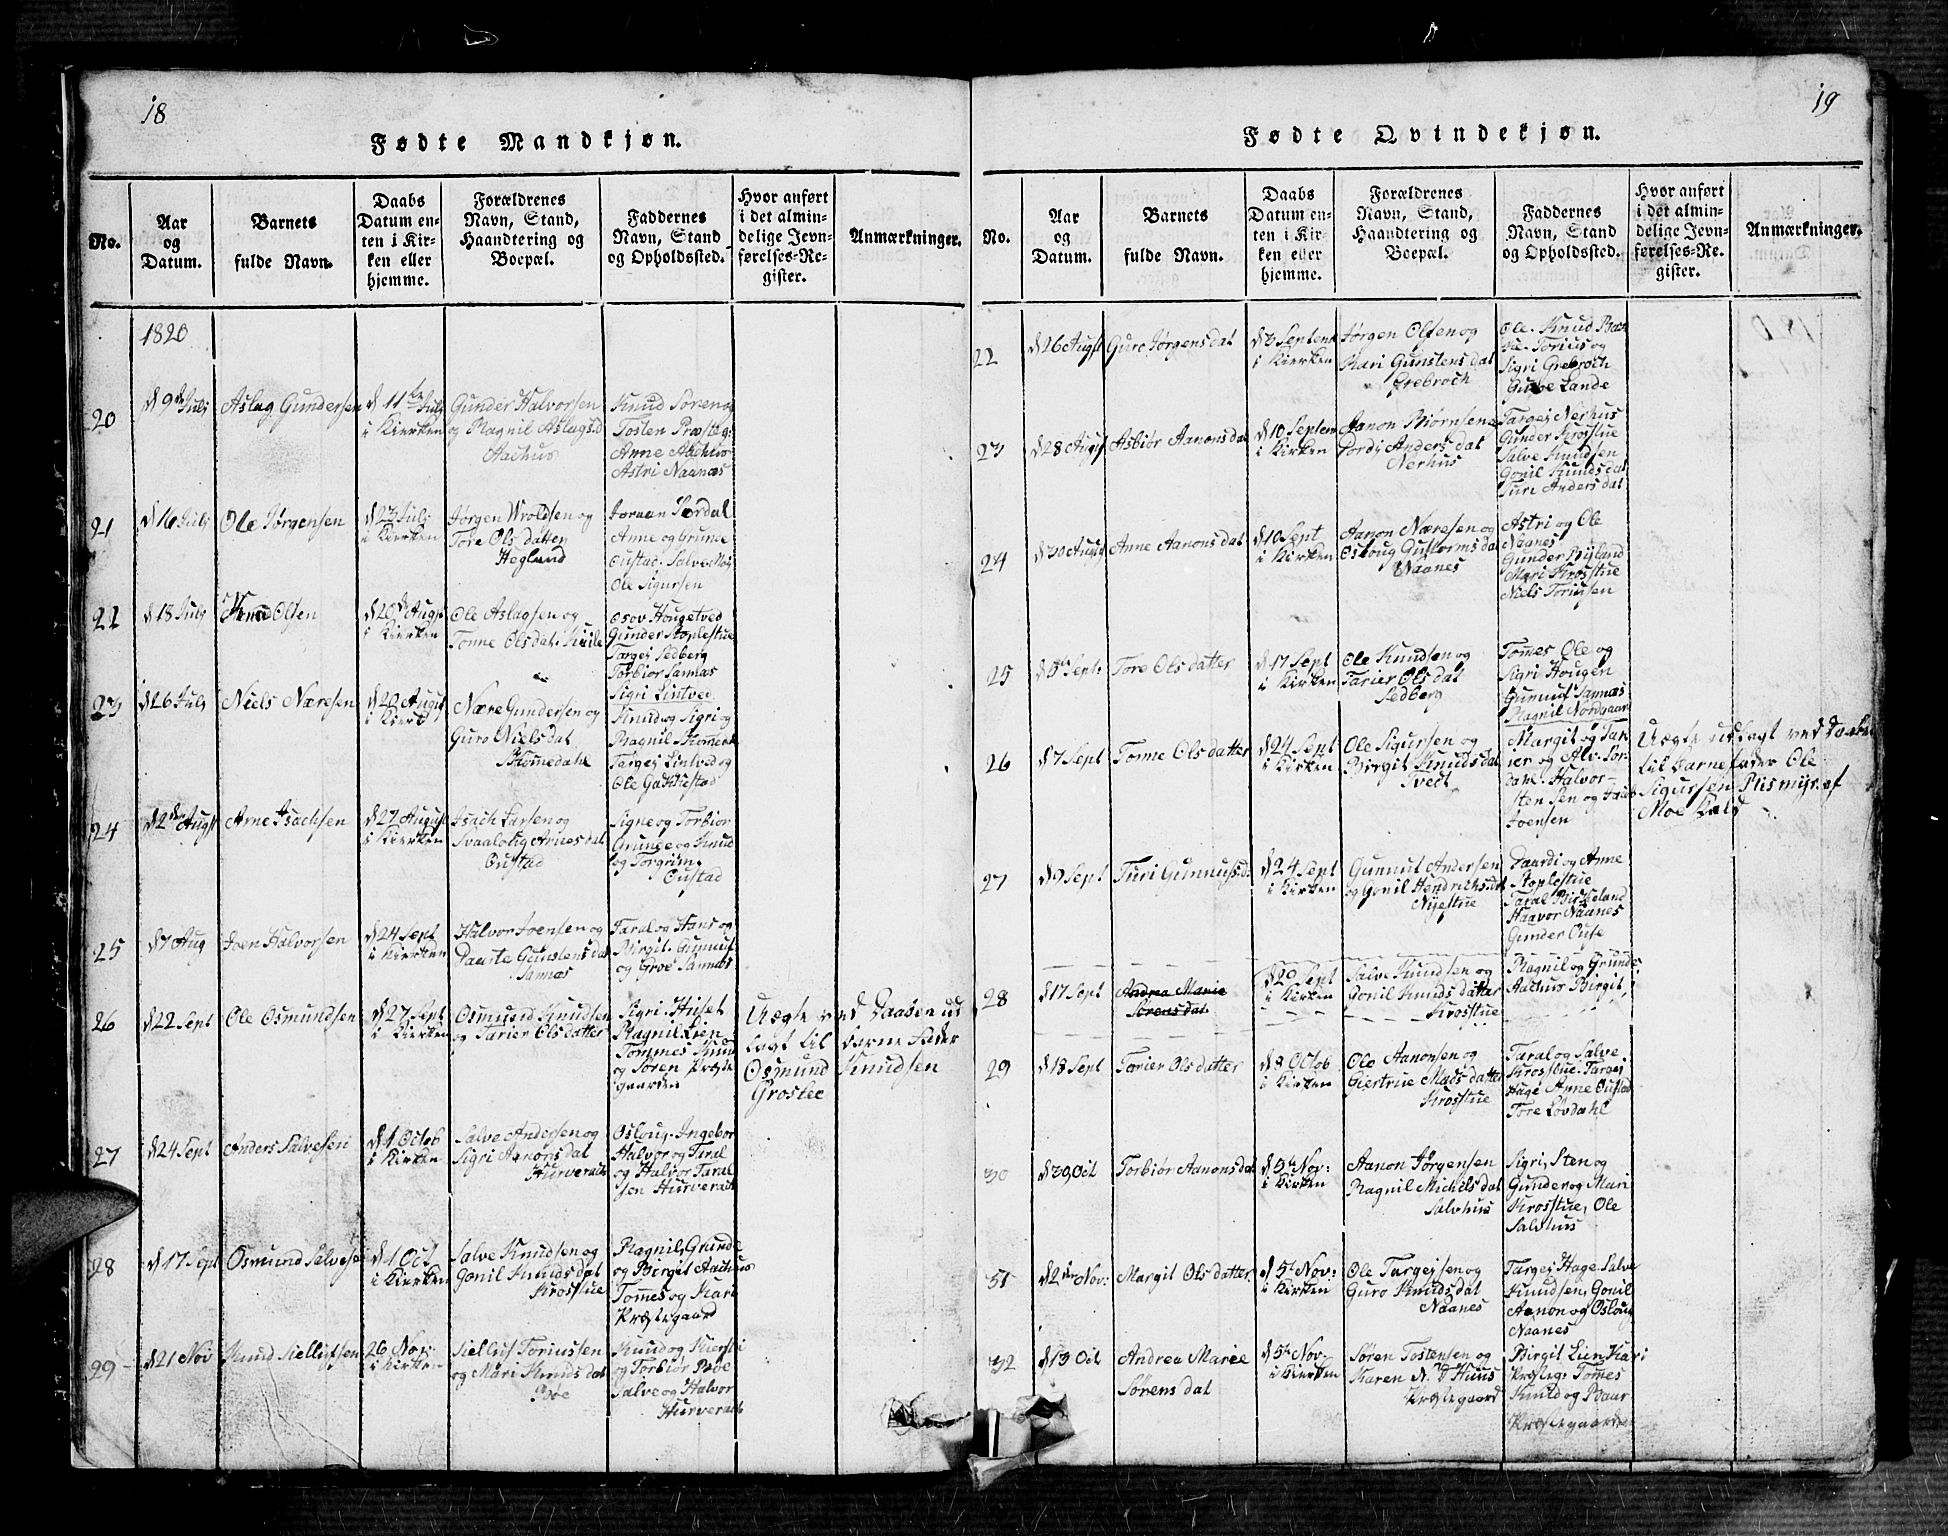 18
Fødte Mandkjøn.
No.
Aar
og
Datum.
Barnets
fulde Navn.
Daabs
Datum en-
ten i Kir-
ken eller
hjemme.
Forældrenes
Navn, Stand,
Haandtering og
Boepæl.
Faddernes
Navn, Stand
og Opholdssted.
Hvor anført
i det almin-
delige Jevn-
førelses-Re-
gister.
Anmærkninger.
1820
20
d 9de Julj
Aslag Gundersen
d 11te Julj
i Kierken
Gunder Halvorsen
og Ragnil Aslagsd
Aachus
Knud Søren og
Tosten Præsteg:
Anne Aachus
Astri Naanæs
21
d 16 Julj
Ole Jørgensen
d 23 Julj
i Kierken
Jørgen Wroldsen og
Tore Ols datter
Heglund
Joraan Sordal
Anne og Grunde
Oustad. Salve Moj
Ole Sigursen
22
d 18 Julj
Knud Olsen
d 20de Augs
i Kierken
Ole Aslagsen og
Tonne Olsdat. Kiile
Osov Hougetved
Gunder Stoplestue
Targej Sedberg
Torbior Sannæs
Sigri Lintved
23
d 26 Julj
Niels Næresen
d 20 Augus
i Kierk
Nære Gundersen og
Guro Nielsdat
Skomedahl
Knud og Sigri og
Ragnil Skomedal
Targej Lintved og
Ole Gakkestad
24
d 2den Augs
Arne Isachsen
d 27 August
i Kierken
Isach Larsen og
Svaalotig Arnesdat
Oustad
Signe og Torbior
Grunde og Knud
og Torgrim
Oustad
25
d 7 Aug
Joen Halvorsen
d 24 Sept
i Kierken
Halvor Joensen og
Daarte Gunstensdat
Sannæs
Taral og Hans og
Birgit. Gunnuf
og Groe Sannæs
26
d 22 Sept
Ole Osmundsen
d 27 Sept
i Kierken
Osmund Knudsen
og Tarier Olsdatter
Sigri. Huset
Ragnil Lien
Tommes Knud
og Søren Præste
gaarden
Uægte ved Daaben ud
lagt til Barne Fader
Osmund Knudsen
Grostee
27
d 24 Sept
Anders Salvesen
d 1 Octob
i Kierken
Salve Andersen og
Sigri Aanonsdat
Hurverack
Osloug. Ingebor
Halvor og Taral
og Halvor Taral
sen Hurverack
28
d 17 Sept
Osmund Salvesen
d 1 Oct
i Kierken
Salve Knudsen og
Gonil Knudsdat
Krosstue
Ragnil, Grunde
og Birgit Aachus
Tomes og Kari
Præstegaard
29
d 21 Nov
Knud Siellufsen
26 Nov:
i Kirke
Sielluf Toriussen
og Mari Knudsdat
Bøe
Knud og Kiersti
og Torbiør Bøe
Salve og Halvor
Hurverack
19
Fødte Qvindekjøn.
No.
Aar
og
Datum.
Barnets
fulde Navn.
Daabs
Datum en-
ten i Kir-
ken eller
hjemme.
Forældrenes
Navn, Stand,
Haandtering og
Boepæl.
Faddernes
Navn, Stand
og Opholdssted.
Hvor anført
i det almin-
delige Jevn-
førelses-Re-
gister.
Anmærkninger.
22
d 26 Augst
Guro Jørgensdat
d 3 Septem
i Kierken
Jørgen Olsen og
Mari Gunstensdat
Grebroch
Ole. Knud
Torius og
Sigri Grebroch
Lande
23
d 28 Augs
Asbiør Aanonsdat
d 10 Septem
i Kierken
Aanon Biørnsen
Pordy Andersdat
Nerhus
Targej Nerhus
Gunder Krosstue
Salve Knudsen
Gonil Knudsdat
Turi Andersdat
24
d 30 Augs
Anne Aanonsdat
d 10 Sept
i Kirken
Aanon Næresen og
Osloug Guttormsdat
Naanes
Astri og Ole
Naanes
Gunder Byland
Mari Krosstue
Niels Toriusen
25
Sept:
Tore Olsdatter
d 17 Sept
i Kirken
Ole Knudsen og
Tarier Olsdat
Sedberg
Tomes Ole og
Sigri Hougen
Gunnut Sannæs
Ragnil Nordgaard
26
d 7 Sept
Tonne Olsdatter
d 24 Sept
i Kirken
Ole Sigursen og
Birgit Knudsdat
Tvedt
Margit og Tar
ier og Alv. Sor
dahl. Halvor
Sten Sen og
Joensen
Uægte udlagt ved Daaben
til Barnefader Ole
Sigursen Plismyr af
Moe Kald
27
d 9 Sept
Turi Gunnufsd.
d 24 Sept
i Kirken
Gunnut Andersen
og Gonil Hendrichsdat
Nyestue
Daardi og Anne
Stoplestue
Taral Birkeland
Haavor Naanes
Gunder Ouse
28
d 17 Sept
Andrea Marie
Sørensdat
d 29 Sept
i Kirken
Salve Knudsen og
Gonil Knudsdatter
Krosstue
Ragnil og Grunde
Aachus Birgit,
29
d 18 Sept
Torier Olsdatter
d 8 Octob
i Kirken
Ole Aanonsen og
Giertrue Madsdatter
Krosstue
Taral og Salve
Krosstue. Targej
Hage Anne Oustad
Tore Løvdahl
30
d 30 Oct
Torbiør Aanonsdat
d 5te Nov:
i Kirken
Aanon Jørgensen
Ragnil Michelsdat
Salvhus
Sigri, Sten og
Gunder og Mari
Krosstue, Ole
Salvhus
31
d 2den Nov:
Margit Olsdatter
d 5te Nov:
i Kirken
Ole Targejsen og
Guro Knudsdat
Naanes
Targej Hage. Salve
Knudsen, Gonil
Aanon og Osloug
Naanes
32
d 13 Oct
Andrea Marie
Sørensdat
d 5te Nov
i Kierken
Søren Tostensen og
Karen N. D Huus
Præstegaard
Birgit Lien Kari
Præsteg: Tomes
Knud og Baar
Præstegaard